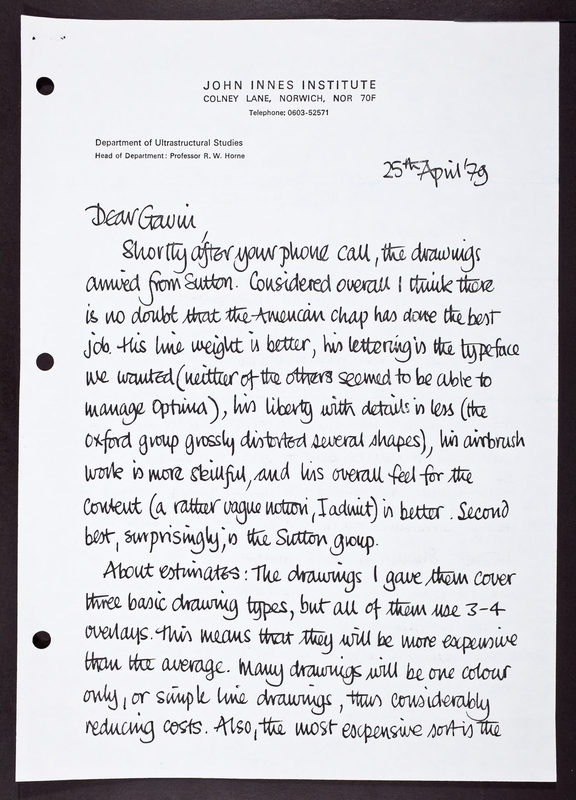 JOHN INNES INSTITUTE
COLNEY LANE, NORWICH, NOR 70F
Telephone: 0603-52571
Department of Ultrastructural Studies
Head of Department: Professor R. W. Horne
25th April '79
Dear Gavin,
Shortly after your phone call, the drawings
arrived from Sutton. Considered overall I think there
is no doubt that the American chap has done the best
job. His line weight is better, his lettering is the typeface
we wanted (neither of the others seemed to be able to
manage Optima), his liberty with details is less (the
Oxford group grossly distorted several shapes), his airbrush
work is more skillful, and his overall feel for the
content (a rather vague notion, I admit) is better. Second
best, surprisingly, is the Sutton group.
About estimates: The drawings I gave them cover
three basic drawing types, but all of them use 3-4
overlays. This means that they will be more expensive
than the average. Many drawings will be one colour
only, or simple line drawings, thus considerably
reducing costs. Also, the most expensive sort is the